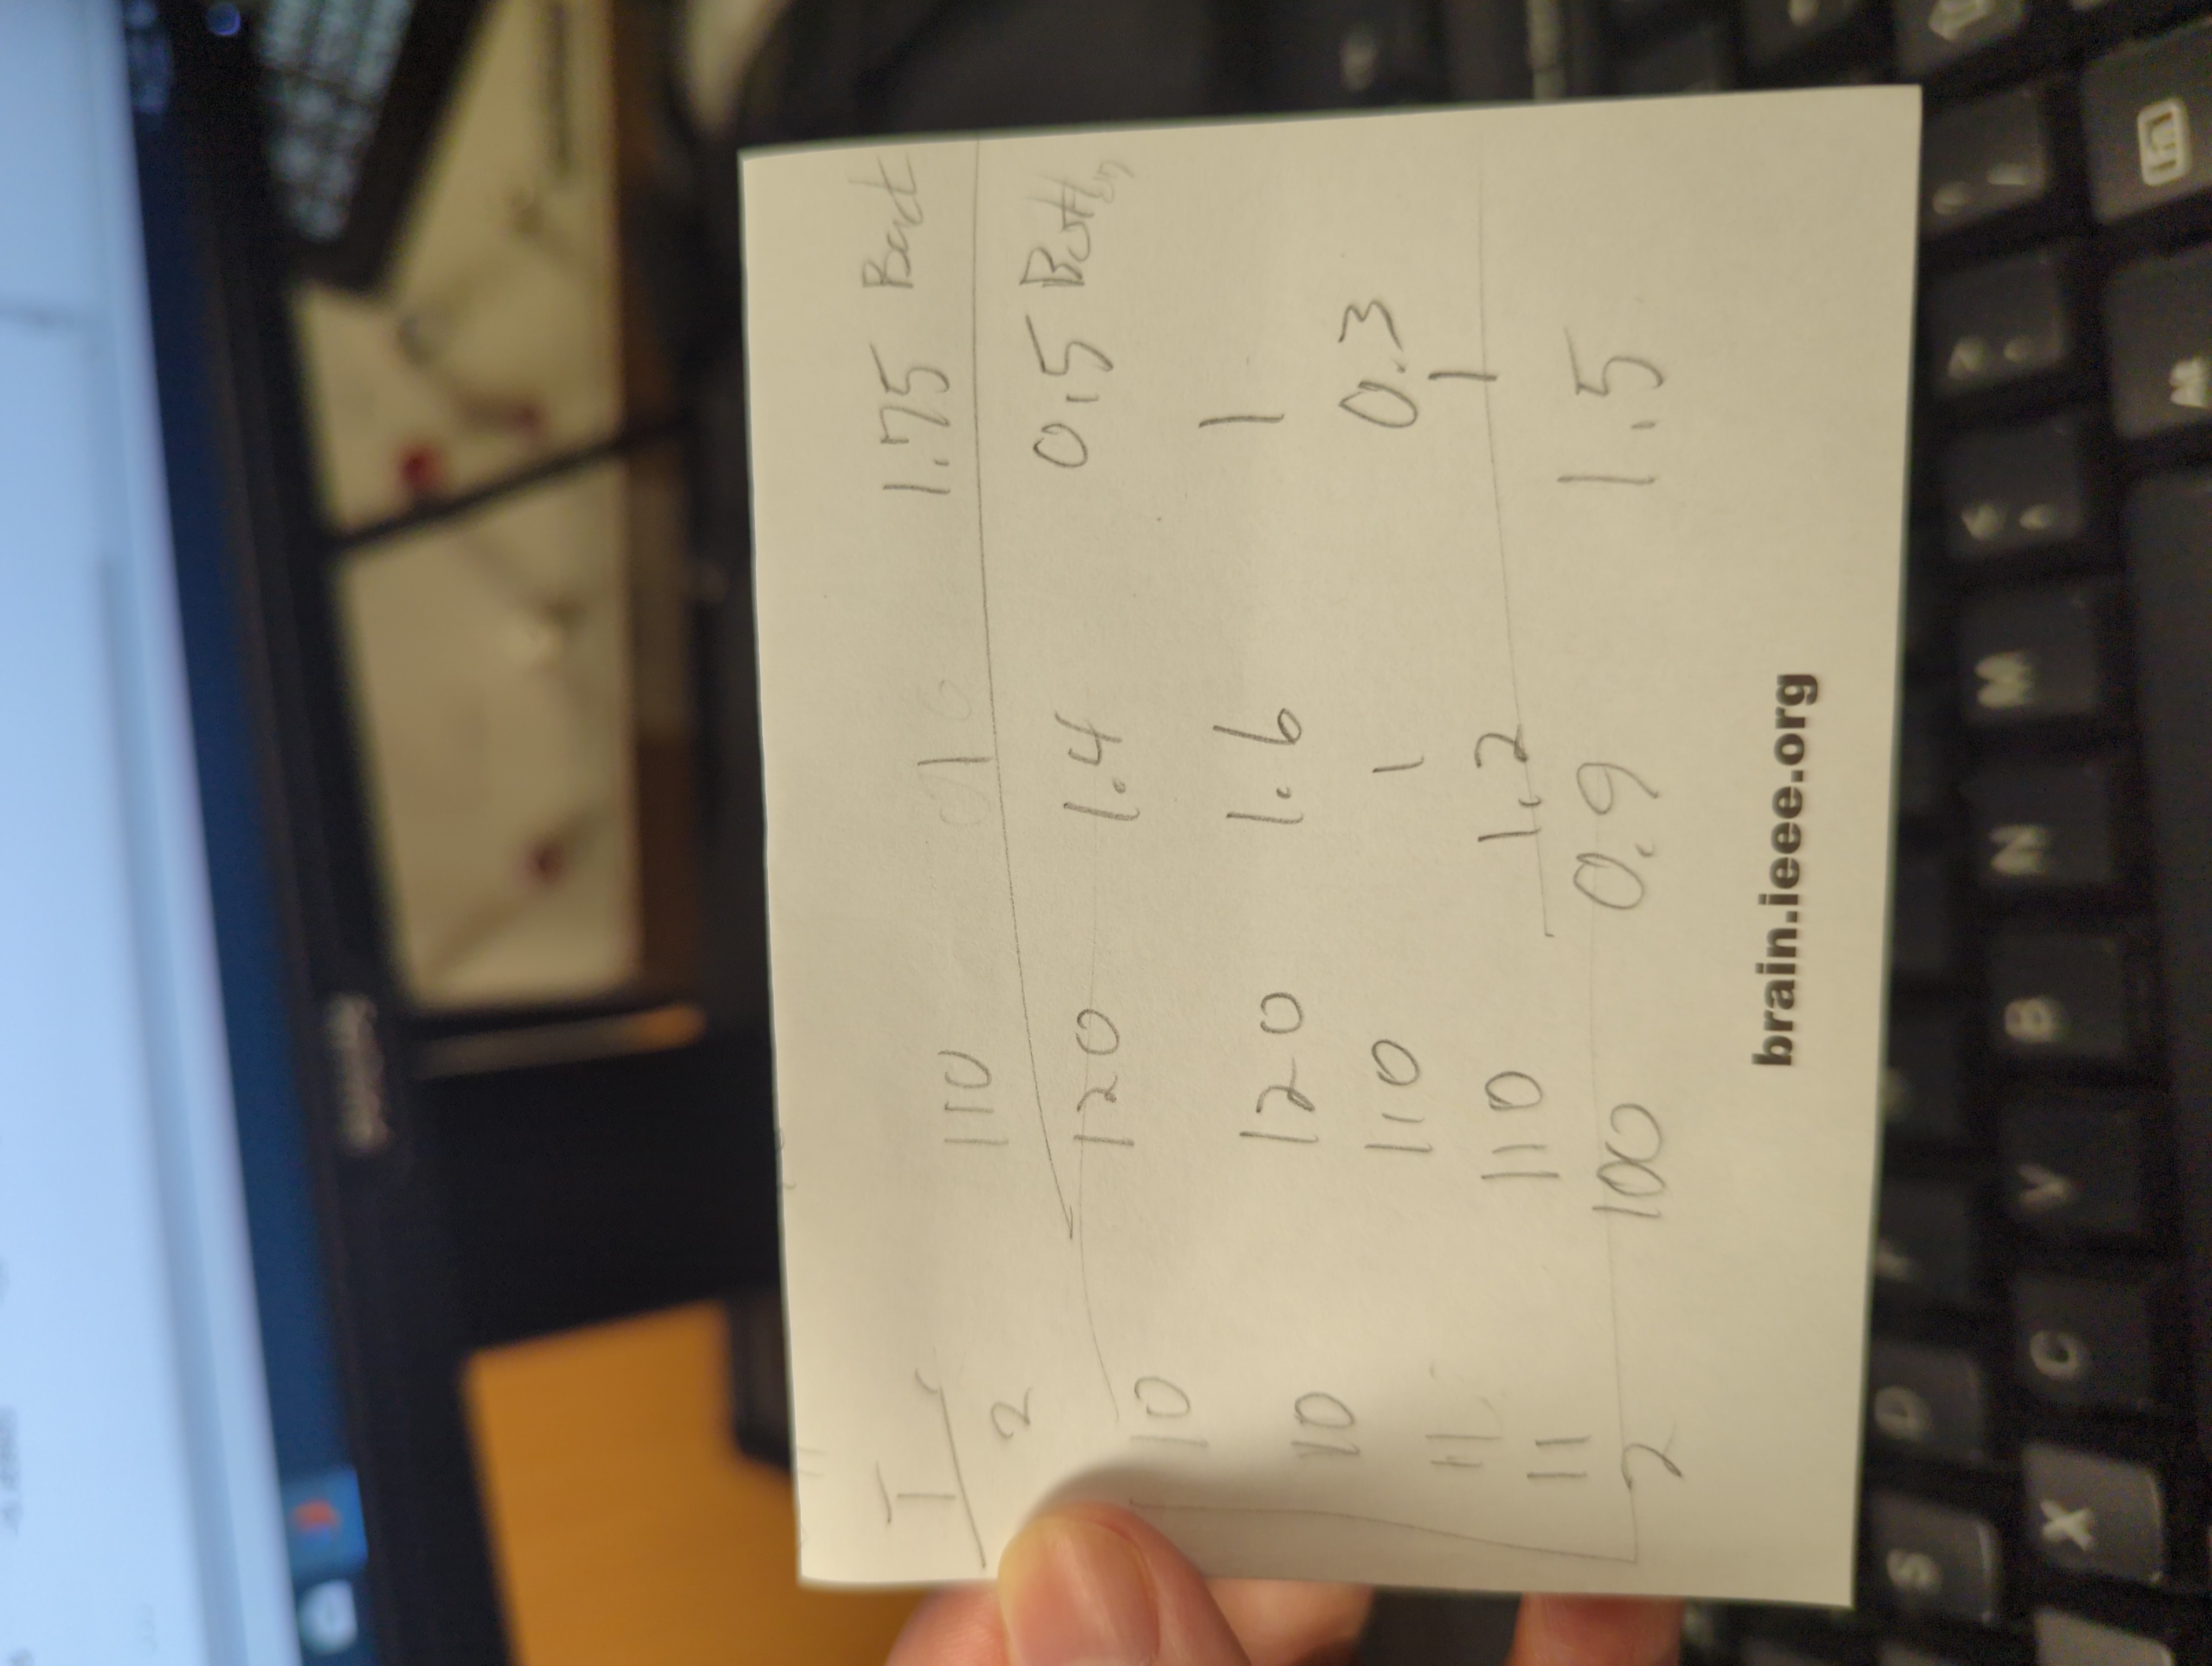 T
2 110 1 1.75 Back
10 120 1.4 0.5 Bottom
10 120 1.6 1
11 110 1 0.3
11 110 1.2 1
2 100 0.9 1.5
brain.ieee.org
S D
X C V B N M < >
Alt Fn